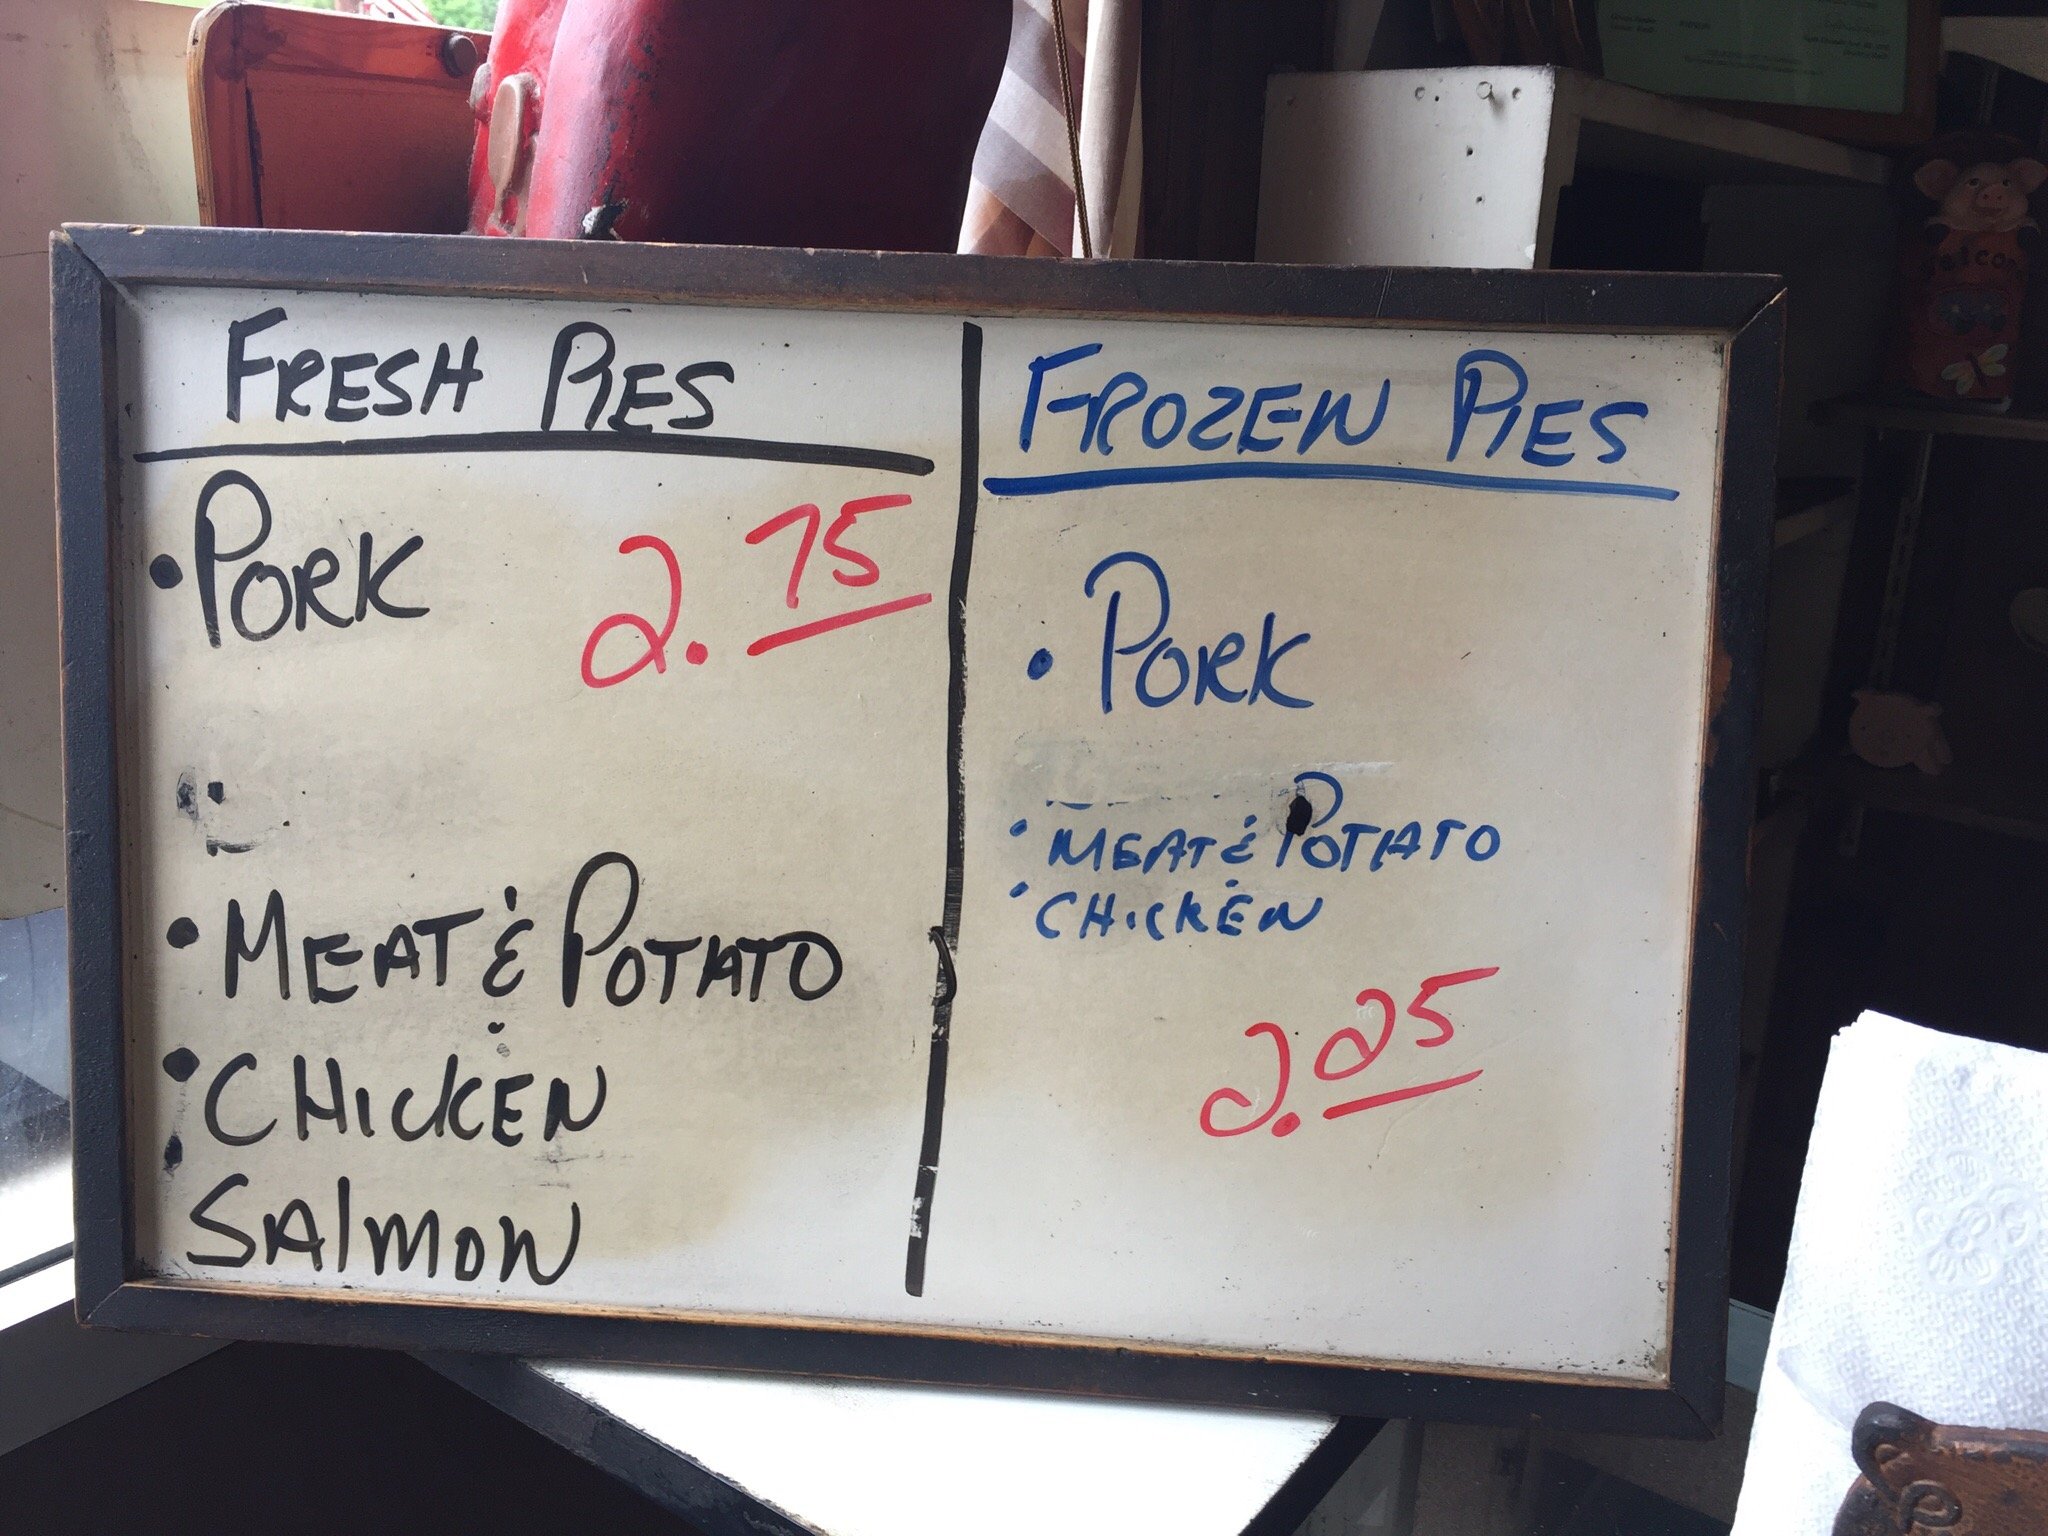 FRESH PIES
• PORK 2.75
• MEAT & POTATO
• CHICKEN
SALMON
FROZEN PIES
• PORK
• MEAT & POTATO
• CHICKEN
2.25